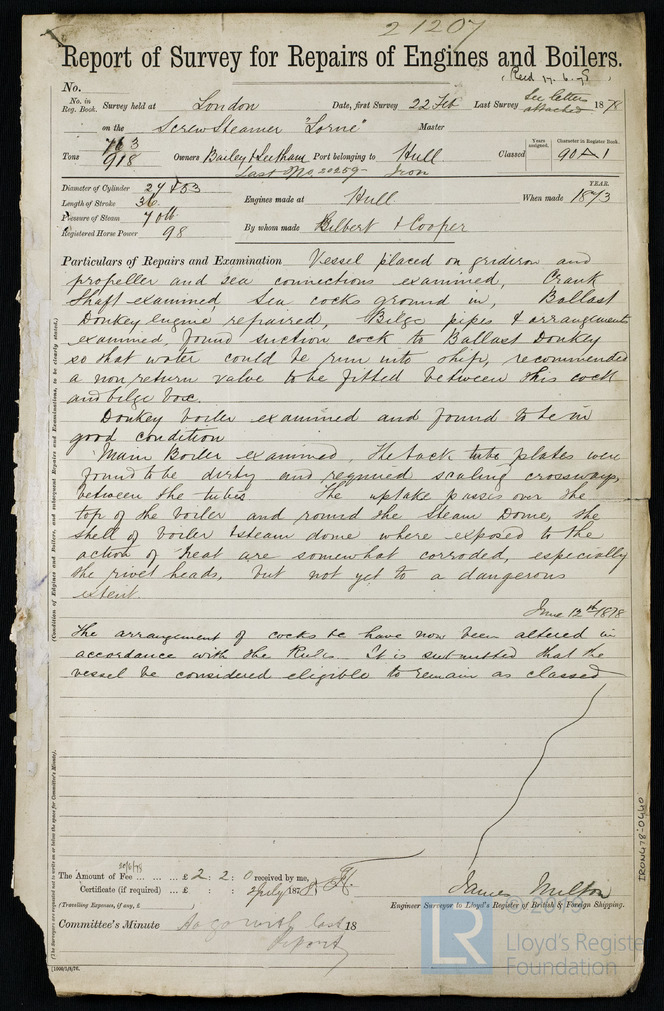 21207
Report of Survey for Repairs of Engines and Boilers.
(Recd 17.6.78)
No.
No. in Reg. Book. Survey held at London Date, first Survey 22 Feb Last Survey See letters attached 1878
on the Screw Steamer "Lorne" Master
Tons 763 918 Owners Bailey & Leetham Port belonging to Hull Classed Years assigned. Character in Register Book. 90 A 1
Last No. 20259 Iron
Diameter of Cylinder 27 & 53
Length of Stroke 36
Pressure of Steam 70 lb
Registered Horse Power 98
Engines made at Hull When made YEAR. 1873
By whom made Gilbert & Cooper
Particulars of Repairs and Examination Vessel placed on gridiron and
propeller and sea connections examined, Crank
Shaft examined, Sea cocks ground in, Ballast
Donkey engine repaired, Bilge pipes & arrangements
examined, found suction cock to Ballast Donkey
so that water could be run into ship, recommended
a non return valve to be fitted between this cock
and bilge box.
Donkey boiler examined and found to be in
good condition
Main Boiler examined, The back tube plates were
found to be dirty and required scaling crossways,
between the tubes The uptake passes over the
top of the boiler and round the Steam Dome, the
shell of boiler & steam dome where exposed to the
action of heat are somewhat corroded, especially
the rivet heads, but not yet to a dangerous
extent.
June 12th 1878
The arrangement of cocks &c have now been altered in
accordance with the Rules It is submitted that the
vessel be considered eligible to remain as classed
20/6/78
The Amount of Fee ... ... ... £ 2 : 2 : 0 received by me,
Certificate (if required) ... £ : : 2 July 1878
(Travelling Expenses, if any, £ )
James Milton
Engineer Surveyor to Lloyd's Register of British & Foreign Shipping.
Committee's Minute To go with last 18
report
[1000/1/8/76.
(Condition of Engines and Boilers, and subsequent Repairs and Examinations, to be clearly stated.)
(The Surveyors are requested not to write on or below the space for Committee's Minute).
IRON478-0440
LR
Lloyd's Register
Foundation